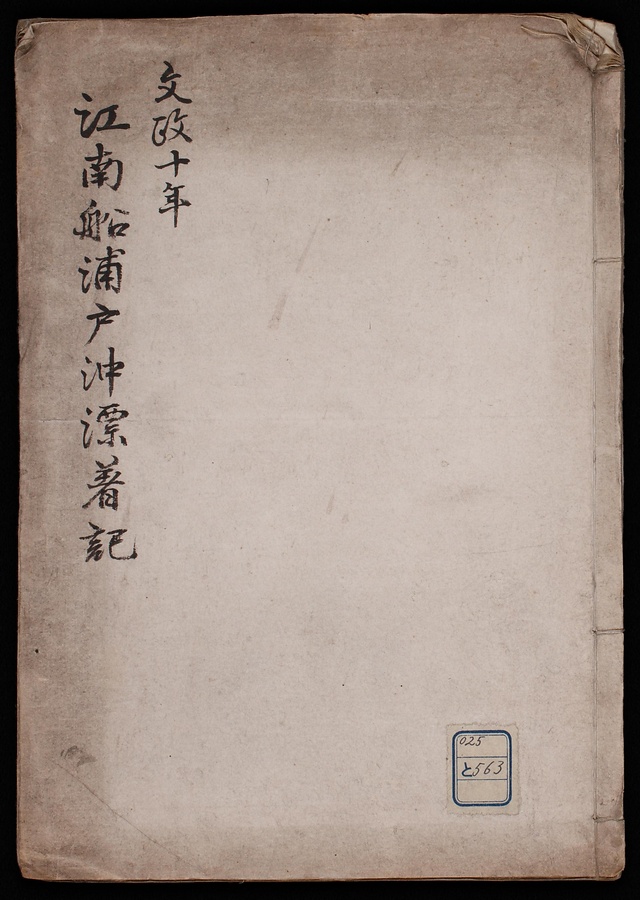 文政十年
江南船浦戸沖漂着記
025
と563